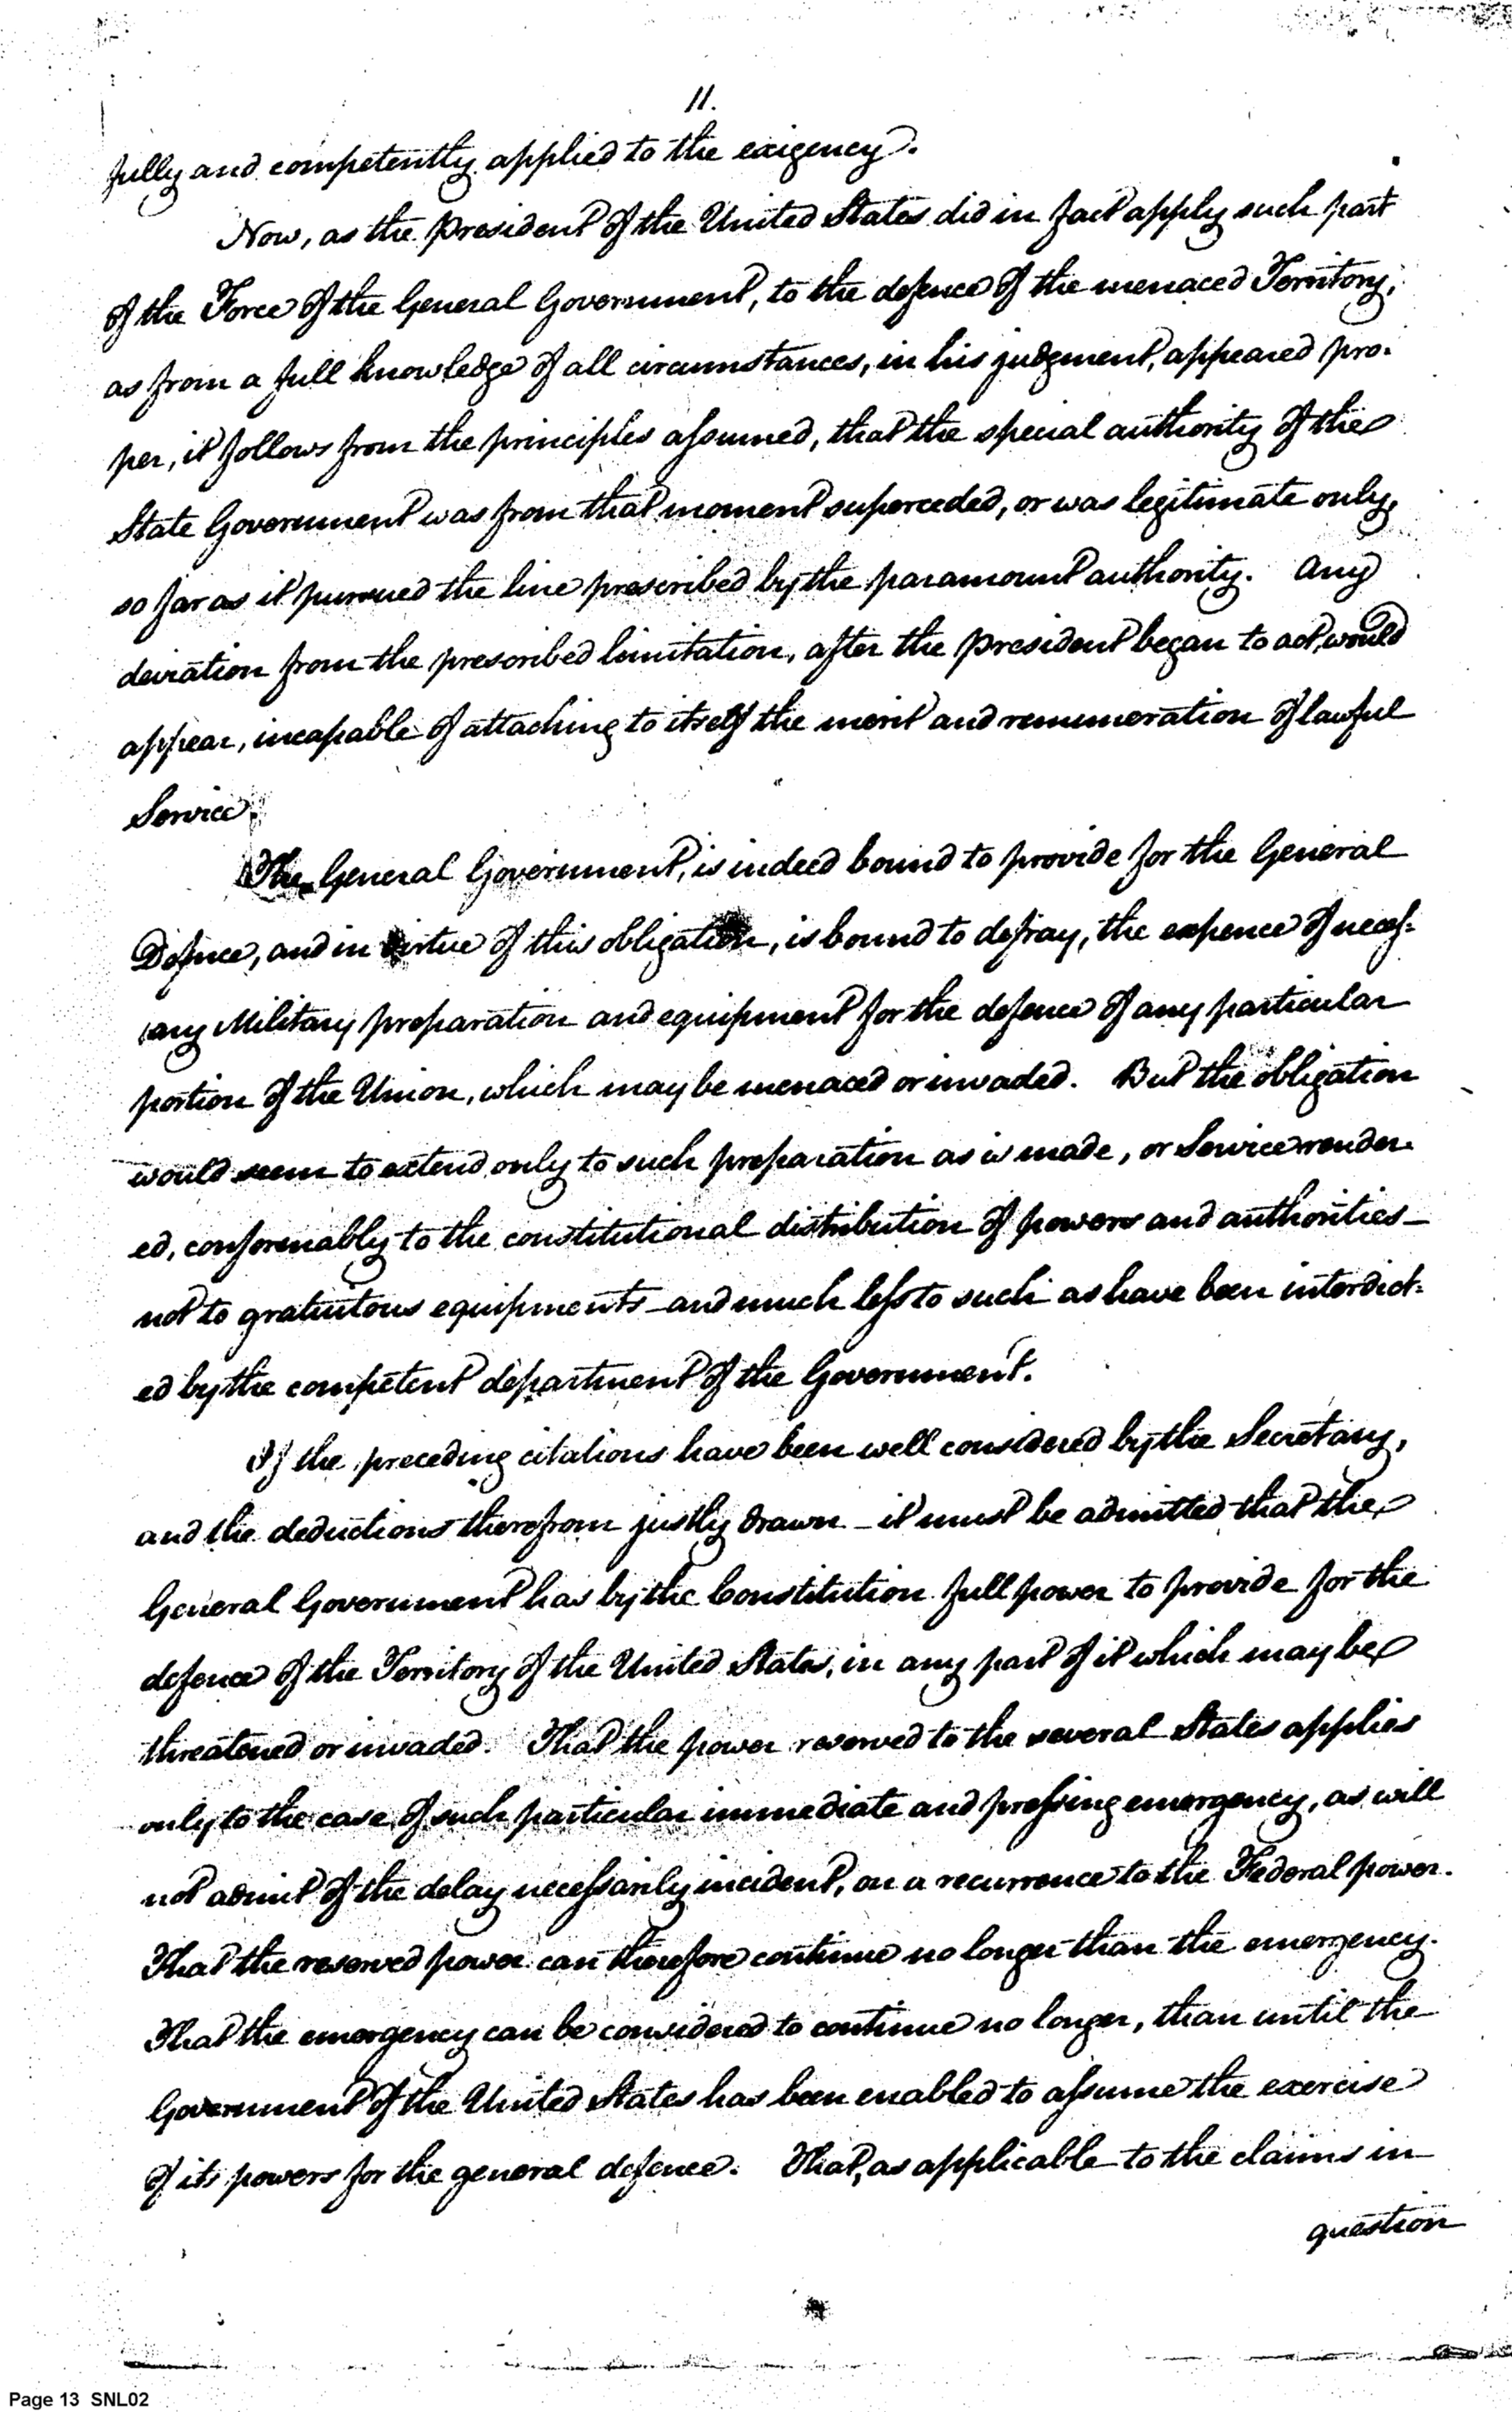 11.
fully and competently applied to the exigency.
Now, as the President of the United States did in fact apply such part
of the Force of the General Government, to the defence of the menaced Territory,
as from a full knowledge of all circumstances, in his judgment, appeared pro-
per, it follows from the principles assumed, that the special authority of the
State Government was from that moment superceded, or was legitimate only,
so far as it pursued the line prescribed by the paramount authority. Any
deviation from the prescribed limitation, after the President began to act, would
appear, incapable of attaching to itself the merit and renumeration of lawful
Service.
The General Government, is indeed bound to provide for the General
Defence, and in virtue of this obligation, is bound to defray, the expence of necess=
ary Military preparation and equipment for the defence of any particular
portion of the Union, which may be menaced or invaded. But the obligation
would seem to extend only to such preparation as is made, or Service render-
ed, conformably to the constitutional distribution of powers and authorities—
not to gratuitous equipments—and much less to such as have been interdict=
ed by the competent department of the Government.
If the preceding citations have been well considered by the Secretary,
and the deductions therefrom justly drawn—it must be admitted that the
General Government has by the Constitution full power to provide for the
defence of the Territory of the United States, in any part of it which may be
threatened or invaded. That the power reserved to the several States applies
only to the case of such particular immediate and pressing emergency, as will
not admit of the delay necessarily incident, on a recurrence to the Federal power.
That the reserved power can therefore continue no longer than the emergency.
That the emergency can be considered to continue no longer, than until the
Government of the United States has been enabled to assume the exercise
of its powers for the general defence. That, as applicable to the claims in
question
Page 13 SNL02